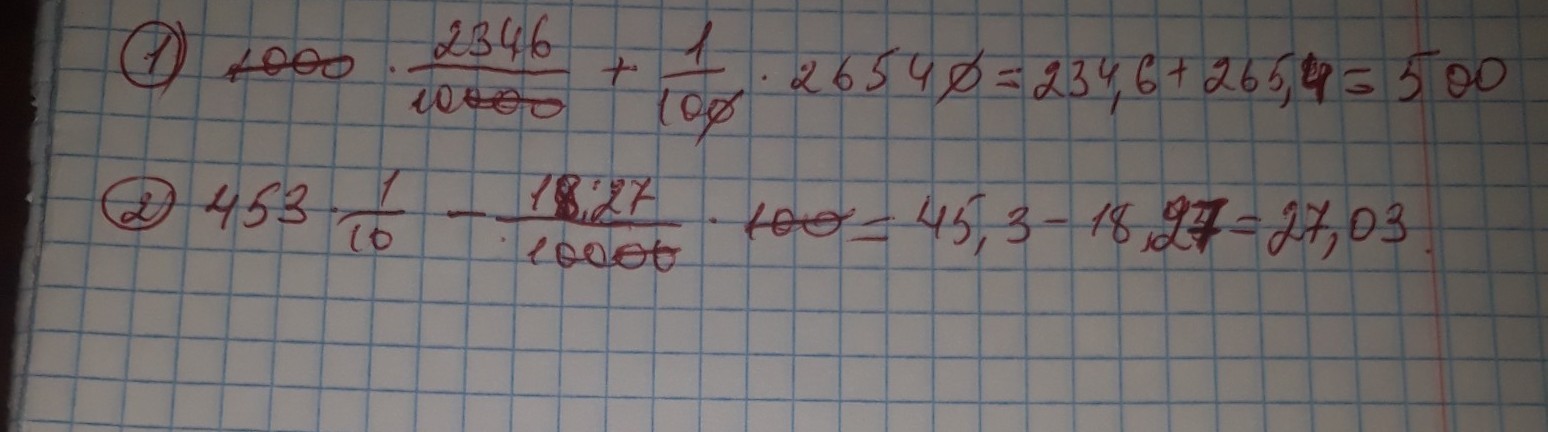 1) 1000 · 2346/10000 + 1/100 · 26540 = 234,6 + 265,4 = 500
2) 453 · 1/10 - 1827/10000 · 100 = 45,3 - 18,27 = 27,03